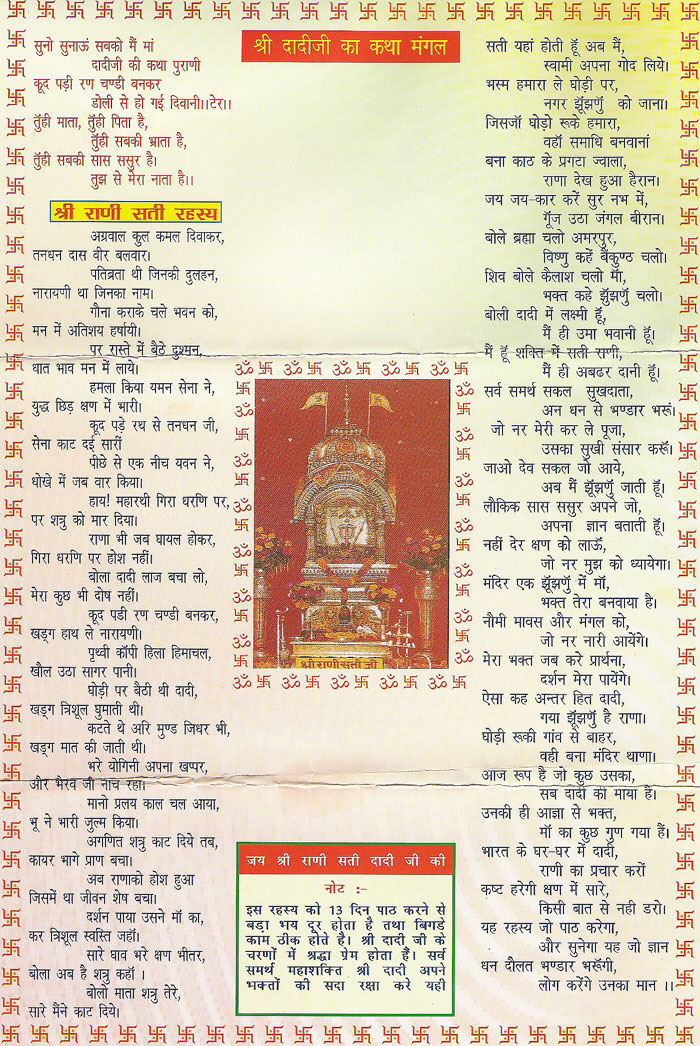 श्री दादीजी का कथा मंगल
सुनो सुनाऊं सबको मैं मां
दादीजी की कथा पुराणी
कूद पड़ी रण चण्डी बनकर
डोली से हो गई दिवानी।।टेर।।
तूँही माता, तूँही पिता है,
तूँही सबकी भ्राता है,
तूँही सबकी सास ससुर है।
तुझ से मेरा नाता है।।
श्री राणी सती रहस्य
अग्रवाल कुल कमल दिवाकर,
तनधन दास वीर बलवार।
पतिब्रता थी जिनकी दुलहन,
नारायणी था जिनका नाम।
गौना कराके चले भवन को,
मन में अतिशय हर्षायी।
पर रास्ते में बैठे दुश्मन,
धात भाव मन में लाये।
हमला किया यमन सेना ने,
युद्ध छिड़ क्षण में भारी।
कूद पड़े रथ से तनधन जी,
सेना काट दई सारीं
पीछे से एक नीच यवन ने,
धोखे में जब वार किया।
हाय! महारथी गिरा धरणि पर,
पर शत्रु को मार दिया।
राणा भी जब घायल होकर,
गिरा धरणि पर होश नहीं।
बोला दादी लाज बचा लो,
मेरा कुछ भी दोष नहीं।
कूद पडी रण चण्डी बनकर,
खड्ग हाथ ले नारायणी।
पृथ्वी कॉपी हिला हिमाचल,
खौल उठा सागर पानी।
घोड़ी पर बैठी थी दादी,
खड्ग त्रिशूल घुमाती थी।
कटते थे अरि मुण्ड जिधर भी,
खड्ग मात की जाती थी।
भरे योगिनी अपना खप्पर,
और भैरव जी नाच रहा।
मानो प्रलय काल चल आया,
भू ने भारी जुल्म किया।
अगणित शत्रु काट दिये तब,
कायर भागे प्राण बचा।
अब राणाको होश हुआ
जिसमें था जीवन शेष बचा।
दर्शन पाया उसने माँ का,
कर त्रिशूल स्वस्ति जहाँ।
सारे घाव भरे क्षण भीतर,
बोला अब है शत्रु कहाँ ।
बोलो माता शत्रु तेरे,
सारे मैंने काट दिये।
श्री राणी सती जी
जय श्री राणी सती दादी जी की
नोट :-
इस रहस्य को 13 दिन पाठ करने से
बड़ा भय दूर होता है तथा बिगडे
काम ठीक होते है। श्री दादी जी के
चरणों में श्रद्धा प्रेम होता है। सर्व
समर्थ महाशक्ति श्री दादी अपने
भक्तों की सदा रक्षा करे यही
सती यहां होती हूँ अब मैं,
स्वामी अपना गोद लिये।
भस्म हमारा ले घोड़ी पर,
नगर झूँझणुँ को जाना।
जिसजाॅ घोड़ी रूके हमारा,
वहाँ समाधि बनवानां
बना काठ के प्रगटा ज्वाला,
राणा देख हुआ हैरान।
जय जय-कार करें सुर नभ में,
गूँज उठा जंगल बीरान।
बोले ब्रह्मा चलो अमरपुर,
विष्णु कहें बैंकुण्ठ चलो।
शिव बोले कैलाश चलो माँ,
भक्त कहे झुँझणुँ चलो।
बोली दादी में लक्ष्मी हूँ,
मैं ही उमा भवानी हूँ।
मैं हूँ शक्ति में सती राणी,
मैं ही अबढर दानी हूँ।
सर्व समर्थ सकल सुखदाता,
अन धन से भण्डार भरूं।
जो नर मेरी कर ले पूजा,
उसका सुखी संसार करूँ।
जाओ देव सकल जो आये,
अब मैं झूँझणुँ जाती हूँ।
लौकिक सास ससुर अपने जो,
अपना ज्ञान बताती हूँ।
नहीं देर क्षण को लाऊँ,
जो नर मुझ को ध्यायेगा।
मंदिर एक झूँझणुँ में माँ,
भक्त तेरा बनवाया है।
नौमी मावस और मंगल को,
जो नर नारी आयेंगे।
मेरा भक्त जब करे प्रार्थना,
दर्शन मेरा पायेंगे।
ऐसा कह अन्तर हित दादी,
गया झूँझणुँ है राणा।
घोड़ी रूकी गांव से बाहर,
वही बना मंदिर थाणा।
आज रूप है जो कुछ उसका,
सब दादी की माया है।
उनकी ही आज्ञा से भक्त,
माँ का कुछ गुण गया हैं।
भारत के घर-घर में दादी,
राणी का प्रचार करों
कष्ट हरेगी क्षण में सारे,
किसी बात से नही डरो।
यह रहस्य जो पाठ करेगा,
और सुनेगा यह जो ज्ञान
धन दौलत भण्डार भरूँगी,
लोग करेंगे उनका मान ।।